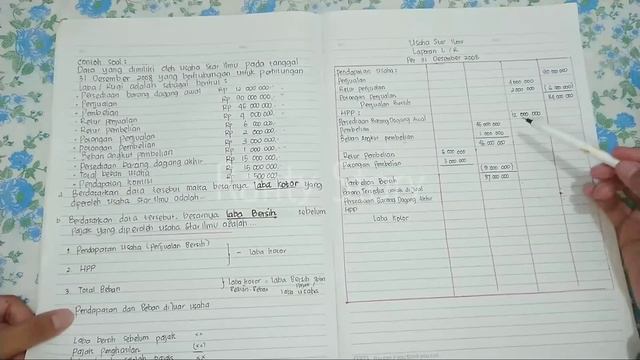 Contoh soal :
Data yang dimiliki oleh Usaha Star Ilmu pada tanggal
31 Desember 2008 yang berhubungan untuk perhitungan
Laba / Rugi adalah sebagai berikut :
- Persediaan barang dagang awal Rp 12 000 000
- Penjualan Rp 90 000 000
- Pembelian Rp 45 000 000
- Retur Penjualan Rp 4 000 000
- Retur Pembelian Rp 6 000 000
- Potongan Penjualan Rp 2 000 000
- Potongan Pembelian Rp 3 000 000
- Beban angkut Pembelian Rp 1 000 000
- Persediaan barang dagang akhir Rp 15 000 000
- Total beban usaha Rp 15 000 000
- Pendapatan komisi Rp 1 500 000
a. Berdasarkan data tersebut maka besarnya laba kotor yang
diperoleh Usaha Star Ilmu adalah...
b. Berdasarkan data tersebut, besarnya laba Bersih sebelum
Pajak yang diperoleh usaha Star Ilmu adalah...
1. Pendapatan Usaha (Penjualan Bersih)
- Laba kotor
2. HPP
3. Total Beban
Laba kotor -
Laba usaha
Pendapatan dan Beban diluar usaha
Laba bersih sebelum pajak xx
Pajak Penghasilan (xx)
Usaha Star Ilmu
Laporan L / R
Per 31 Desember 2008
Pendapatan Usaha :
Penjualan 90 000 000
Retur Penjualan 4 000 000
Potongan Penjualan 2 000 000 (6 000 000)
Penjualan Bersih 84 000 000
HPP :
Persediaan Barang Dagang Awal 12 000 000
Pembelian 45 000 000
Beban Angkut pembelian 1 000 000
46 000 000
Retur Pembelian 6 000 000
Potongan Pembelian 3 000 000
(9 000 000)
Pembelian Bersih 37 000 000
Barang Tersedia untuk dijual
Persediaan Barang Dagang Akhir
HPP
Laba Kotor